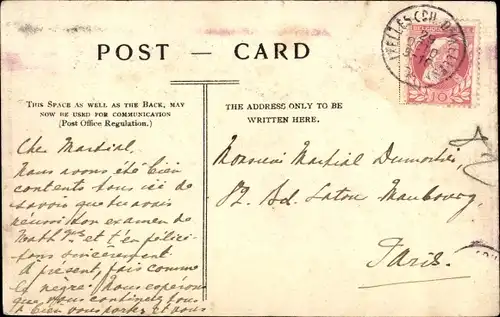 POST — CARD
THIS SPACE AS WELL AS THE BACK, MAY
NOW BE USED FOR COMMUNICATION
(Post Office Regulation.)
THE ADDRESS ONLY TO BE
WRITTEN HERE.
IXELLES
10
Cher Martial.
Nous avons été bien
contents tous ici de
savoir que tu avais
réussi ton examen de
Math et t'en félici-
tons sincèrement.
À présent, fais comme
le nègre. Nous espérons
que vous continuez tous
à bien vous porter et vous
Monsieur Martial
Bd. Latour Maubourg,
Paris.